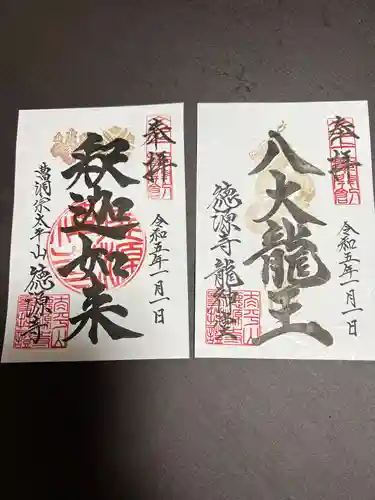 奉拝
令和五年一月一日
釈迦如来
曹洞宗太平山
徳源寺
奉拝
令和五年一月一日
八大龍王
徳源寺
龍神堂